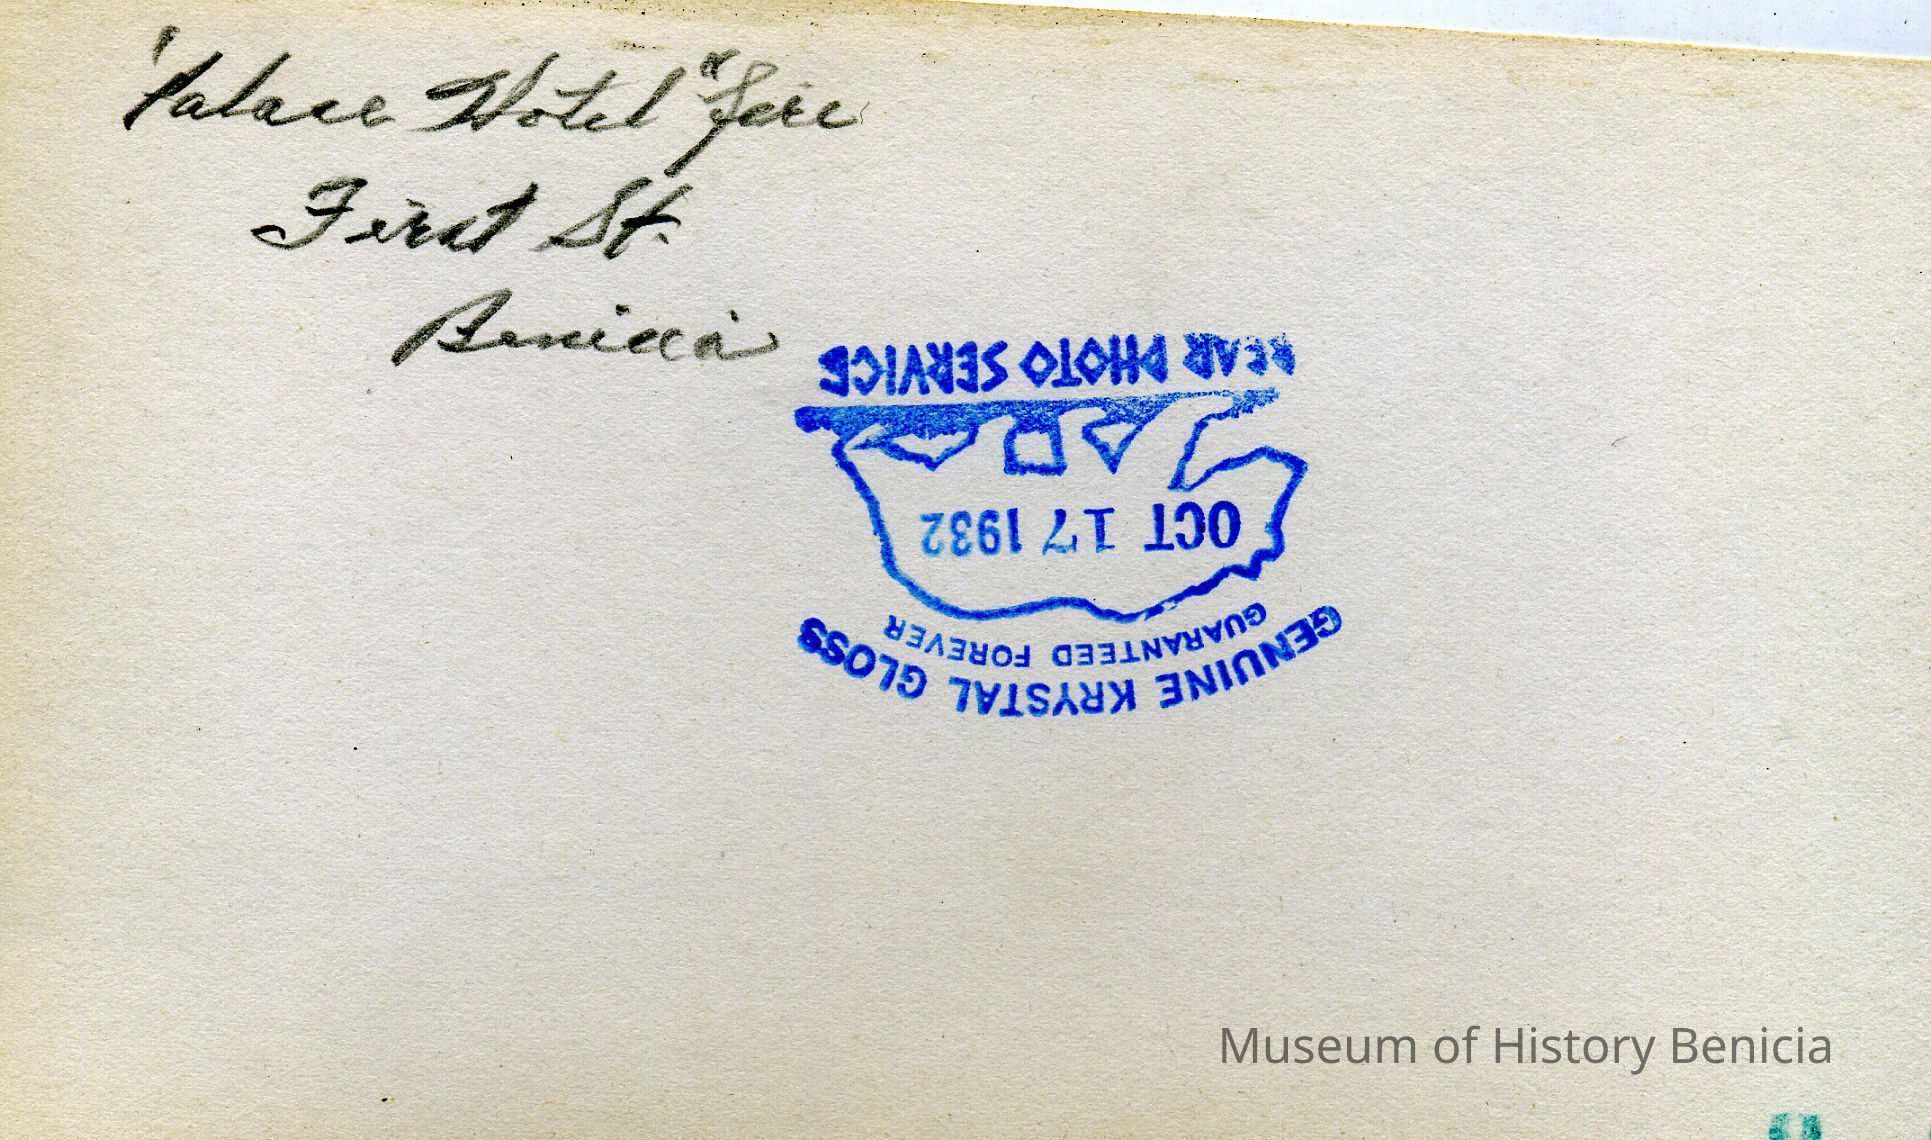 "Palace Hotel" fire
First St.
Benicia
GENUINE KRYSTAL GLOSS
GUARANTEED FOREVER
OCT 17 1932
BEAR PHOTO SERVICE
Museum of History Benicia